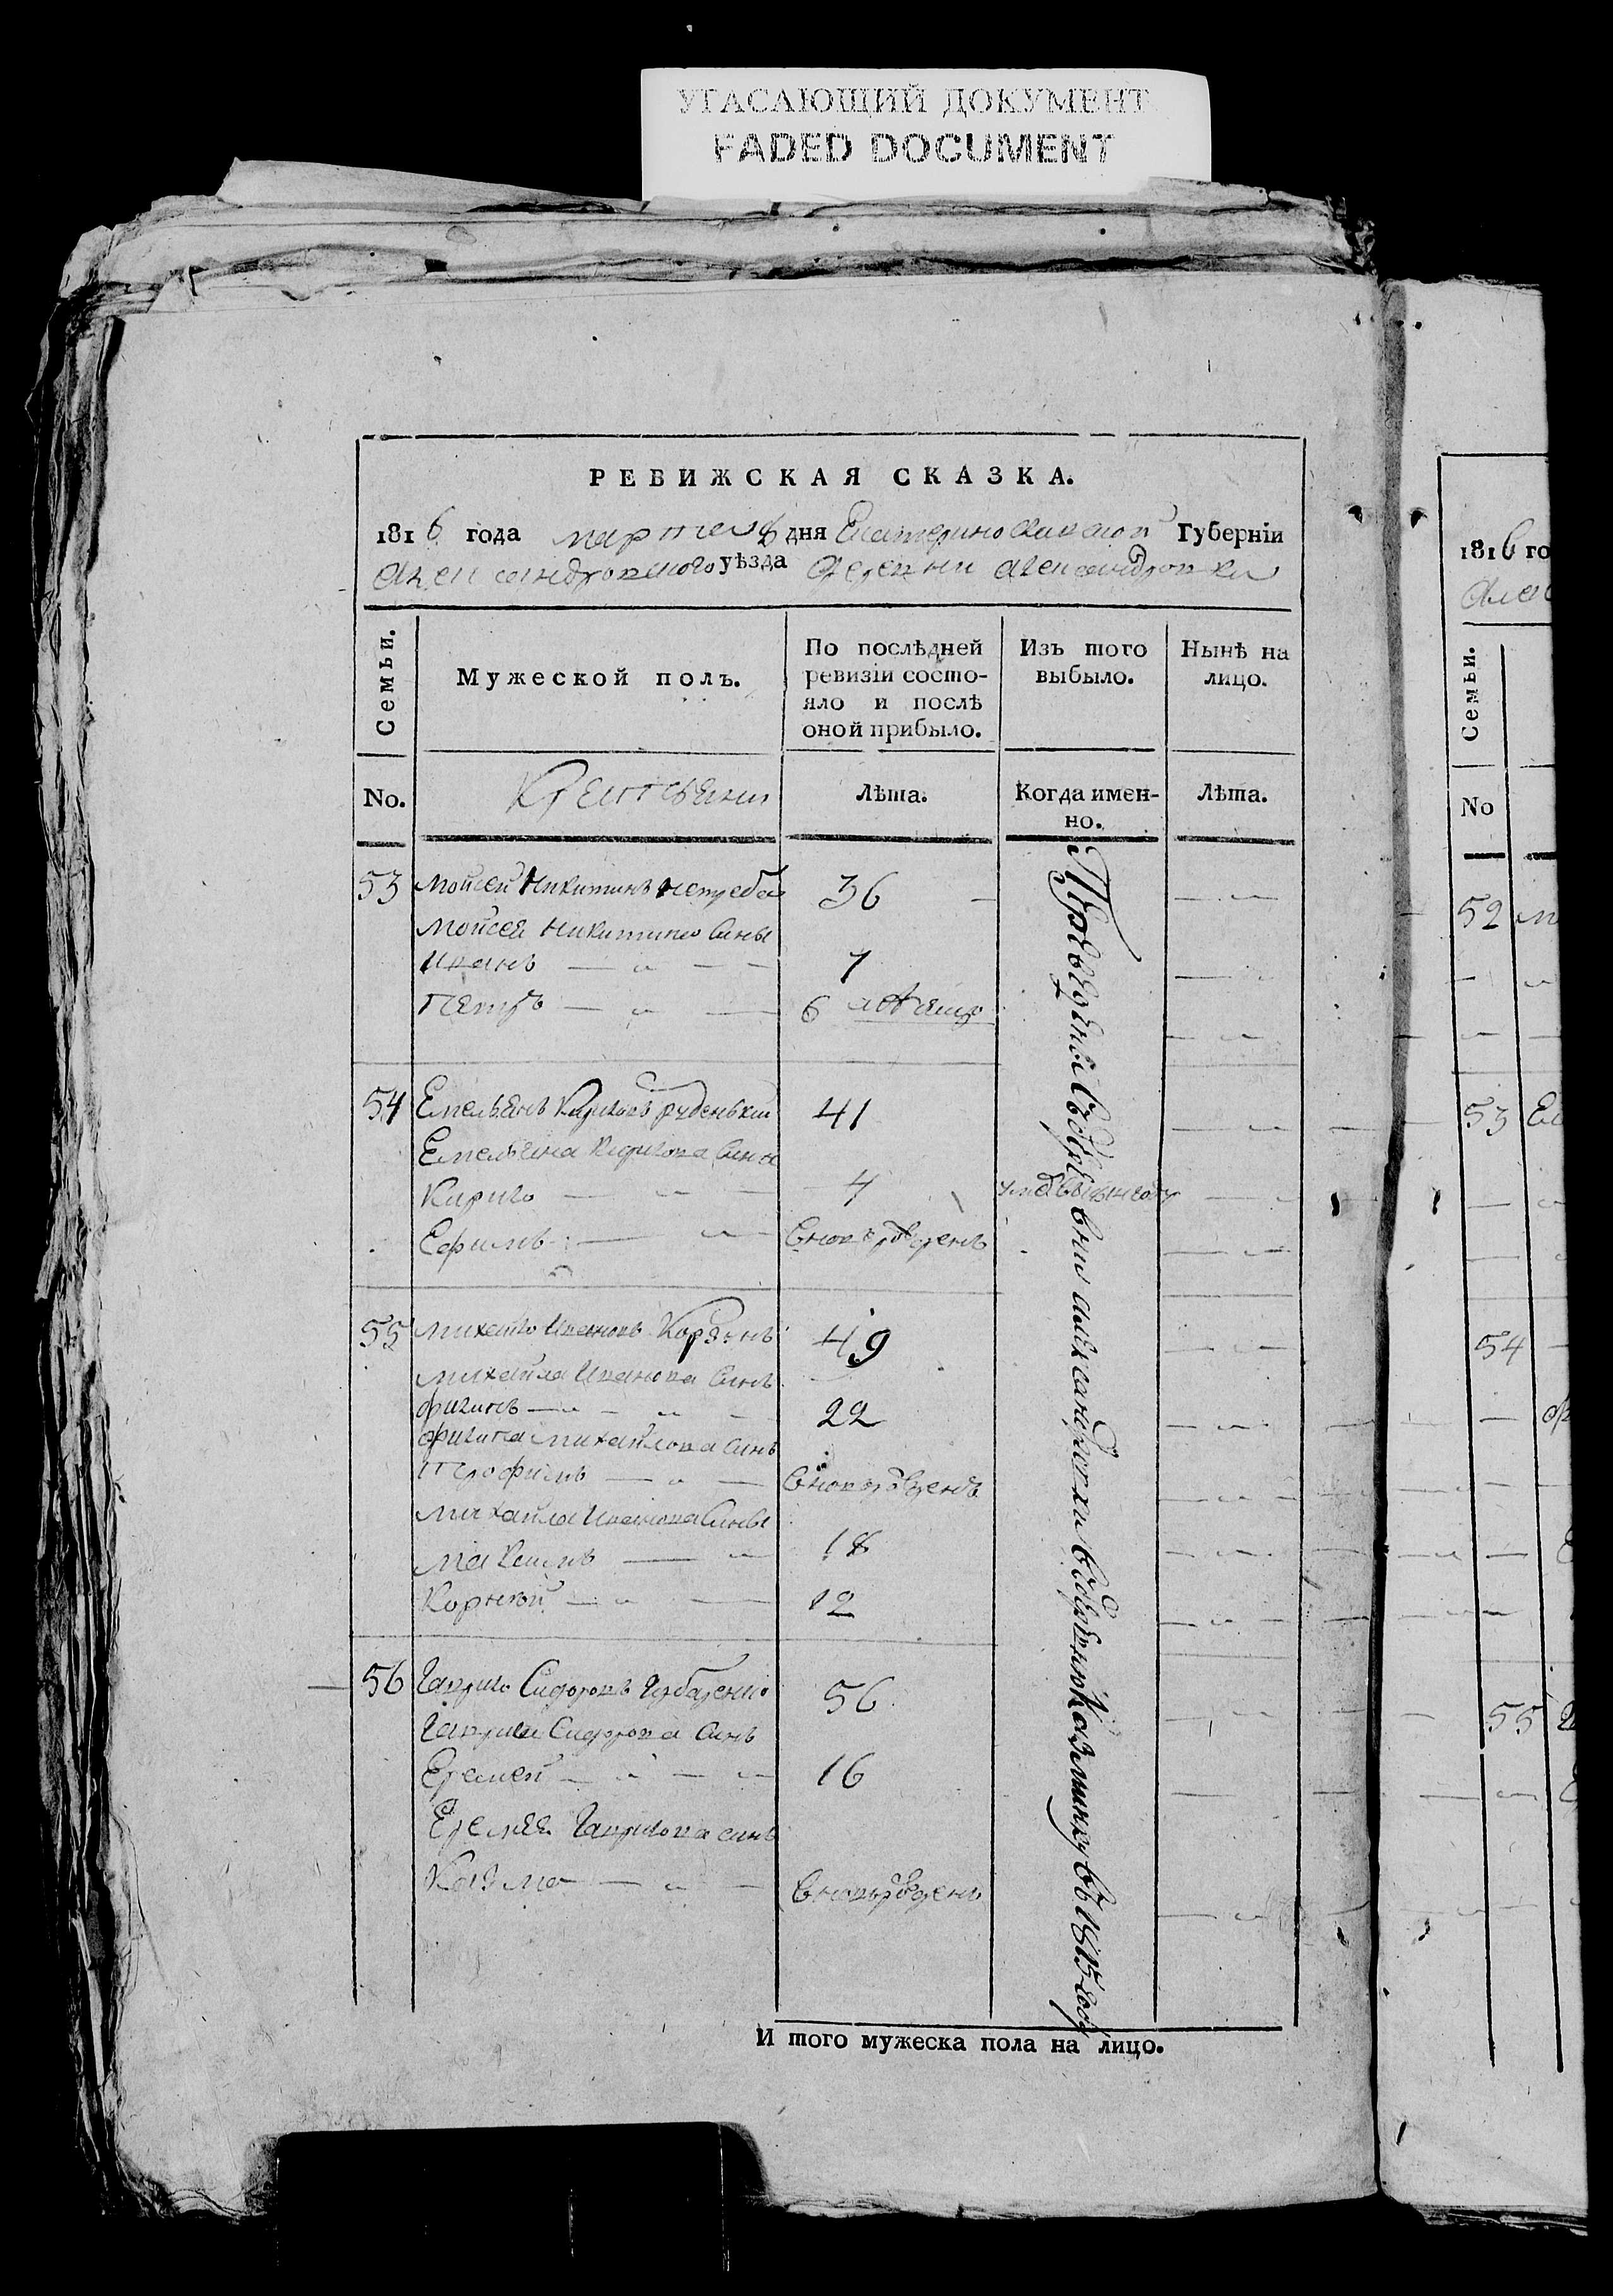 УГАСАЮЩИЙ ДОКУМЕНТ
FADED DOCUMENT
РЕВИЖСКАЯ СКАЗКА.
1816 года марта дня Екатеринославской Губерніи
Александровского уѣзда деревни александровки
Семьи.
Мужеской полъ.
По послѣдней
ревизіи состо-
яло и послѣ
оной прибыло.
Изъ того
выбыло.
Нынѣ на
лицо.
No.
Крестьяни
Лѣта.
Когда имен-
но.
Лѣта.
53 Мойсей Никитинъ 36
Мойсея Никитина сины
Иванъ 7
Петръ 6
54 Емельянъ Кириловъ руденький 41
Емельяна Кирилова сины
Кирило 4
Ефимъ вновърожденъ
55 Михайло Ивановъ 49
Михайла Иванова синъ
филипъ 22
филипа Михайлова синъ
Трофимъ вновърожденъ
Михайла Иванова сины
Максимъ 18
Корней 12
56 Гаврило Сидоровъ Горбаченко 56
Гаврила Сидорова синъ
Еремей 16
Еремея Гаврилова синъ
Козма вновърожденъ
въ 1815 году
И того мужеска пола на лицо.
1816 го
Алек
Семьи.
No
52 м
53 Ем
54
ф
55